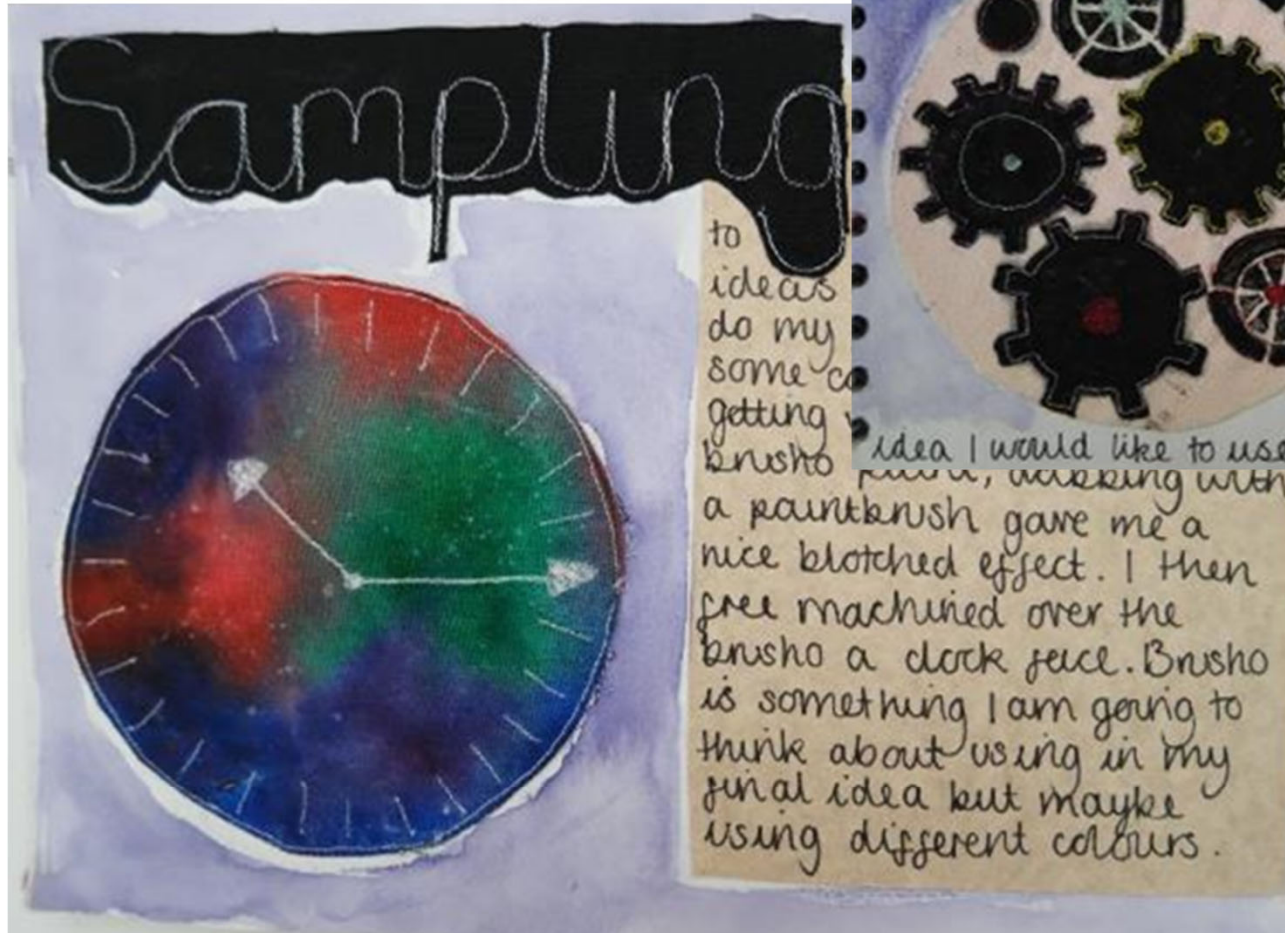 Sampling
to
ideas
do my
some
getting
brusho paint, dabbing with
a paintbrush gave me a
nice blotched effect. I then
free machined over the
brusho a clock face. Brusho
is something I am going to
think about using in my
final idea but maybe
using different colours.
idea I would like to use